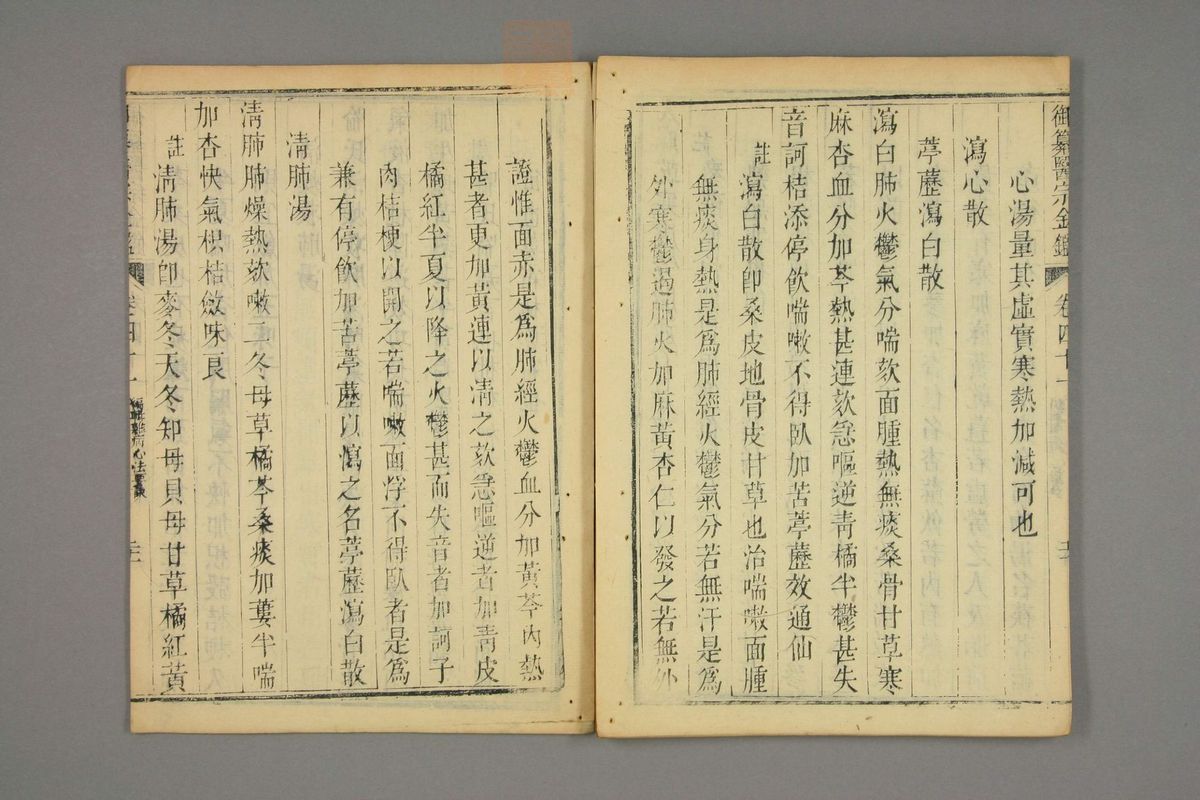 御纂醫宗金鑑 卷四十一
心湯量其虛實寒熱加減可也
瀉心散
葶藶瀉白散
瀉白肺火鬱氣分喘欬面腫熱無痰桑骨甘草寒
麻杏血分加芩熱甚連欬急嘔逆青橘半鬱甚失
音訶桔添停飲喘嗽不得臥加苦葶藶效通仙
註瀉白散卽桑皮地骨皮甘草也治喘嗽面腫
無痰身熱是爲肺經火鬱氣分若無汗是爲
外寒鬱遏肺火加麻黃杏仁以發之若無外
證惟面赤是爲肺經火鬱血分加黃芩內熱
甚者更加黃連以清之欬急嘔逆者加青皮
橘紅半夏以降之火鬱甚而失音者加訶子
肉桔梗以開之若喘嗽面浮不得臥者是爲
兼有停飲加苦葶藶以瀉之名葶藶瀉白散
清肺湯
清肺肺燥熱欬嗽二冬母草橘芩桑痰加蔞半喘
加杏快氣枳桔斂味良
註清肺湯卽麥冬天冬知母貝母甘草橘紅黃
卷四十一 雜病心法要訣